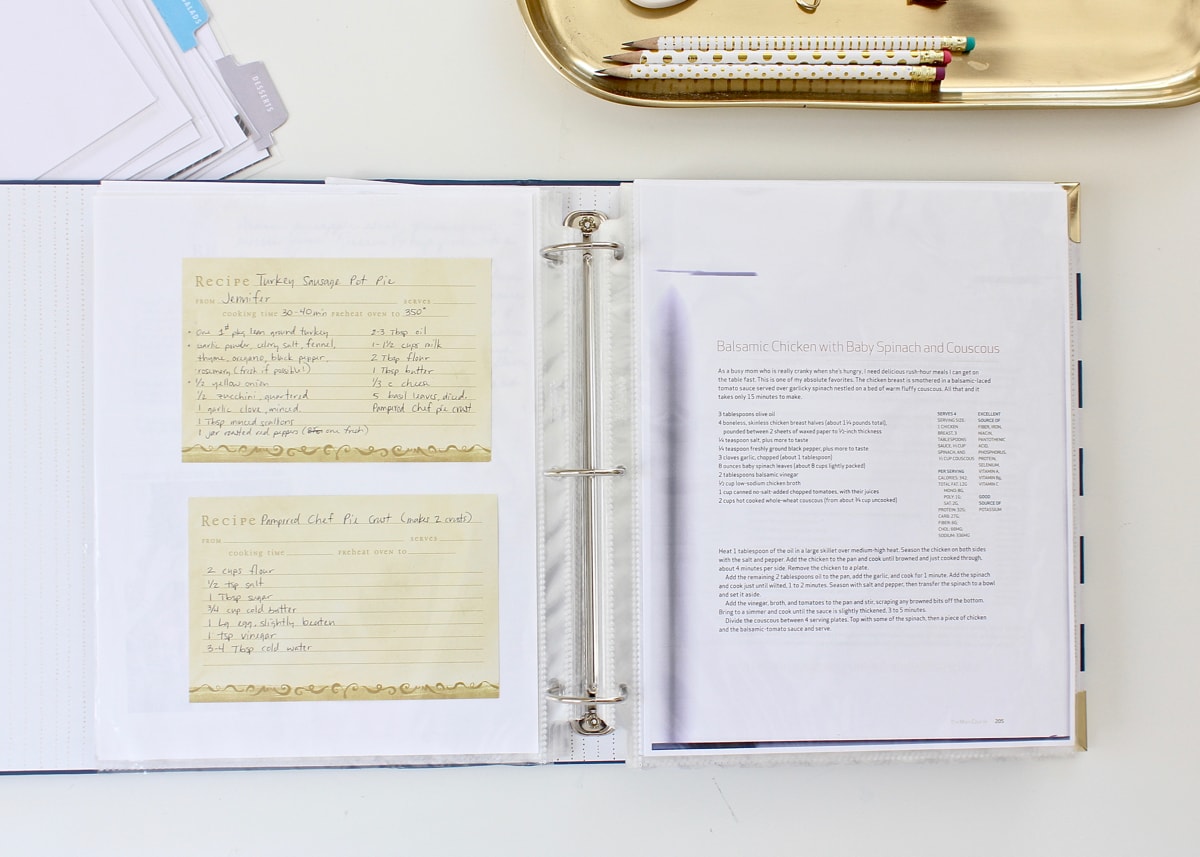 SALADS
DESSERTS
Recipe Turkey Sausage Pot Pie
FROM Jennifer SERVES
cooking time 30-40min preheat oven to 350°
• One 1# pkg lean ground turkey
• Garlic powder, celery salt, fennel,
thyme, oregano, black pepper,
rosemary (fresh if possible!)
• 1/2 yellow onion
1/2 zucchini, quartered
1 garlic clove, minced
1 Tbsp minced scallions
1 jar roasted red peppers (or one fresh)
2-3 Tbsp oil
1-1 1/2 cups milk
2 Tbsp flour
1 Tbsp butter
1/3 c cheese
5 basil leaves, diced
Pampered Chef pie crust
Recipe Pampered Chef Pie Crust (makes 2 crusts)
FROM SERVES
cooking time preheat oven to
2 cups flour
1/2 tsp salt
1 Tbsp sugar
3/4 cup cold butter
1 Lg egg, slightly beaten
1 tsp vinegar
3-4 Tbsp cold water
Balsamic Chicken with Baby Spinach and Couscous
As a busy mom who is really cranky when she's hungry, I need delicious rush-hour meals I can get on
the table fast. This is one of my absolute favorites. The chicken breast is smothered in a balsamic-laced
tomato sauce served over garlicky spinach nestled on a bed of warm fluffy couscous. All that and it
takes only 15 minutes to make.
3 tablespoons olive oil
4 boneless, skinless chicken breast halves (about 1 1/4 pounds total),
pounded between 2 sheets of waxed paper to 1/2-inch thickness
1/4 teaspoon salt, plus more to taste
1/4 teaspoon freshly ground black pepper, plus more to taste
3 cloves garlic, chopped (about 1 tablespoon)
8 ounces baby spinach leaves (about 8 cups lightly packed)
2 tablespoons balsamic vinegar
1/2 cup low-sodium chicken broth
1 cup canned no-salt-added chopped tomatoes, with their juices
2 cups hot cooked whole-wheat couscous (from about 3/4 cup uncooked)
SERVES 4
SERVING SIZE:
1 CHICKEN
BREAST, 3
TABLESPOONS
SAUCE, 1/2 CUP
SPINACH, AND
1/2 CUP COUSCOUS
PER SERVING
CALORIES: 342;
TOTAL FAT: 12G
MONO: 8G,
POLY: 1G,
SAT: 2G,
PROTEIN: 32G;
CARB: 27G;
FIBER: 6G;
CHOL: 68MG;
SODIUM: 336MG
EXCELLENT
SOURCE OF
FIBER, IRON,
NIACIN,
PANTOTHENIC
ACID,
PHOSPHORUS,
PROTEIN,
SELENIUM,
VITAMIN A,
VITAMIN B6,
VITAMIN C
GOOD
SOURCE OF
POTASSIUM
Heat 1 tablespoon of the oil in a large skillet over medium-high heat. Season the chicken on both sides
with the salt and pepper. Add the chicken to the pan and cook until browned and just cooked through,
about 4 minutes per side. Remove the chicken to a plate.
Add the remaining 2 tablespoons oil to the pan, add the garlic, and cook for 1 minute. Add the spinach
and cook just until wilted, 1 to 2 minutes. Season with salt and pepper, then transfer the spinach to a bowl
and set it aside.
Add the vinegar, broth, and tomatoes to the pan and stir, scraping any browned bits off the bottom.
Bring to a simmer and cook until the sauce is slightly thickened, 3 to 5 minutes.
Divide the couscous between 4 serving plates. Top with some of the spinach, then a piece of chicken
and the balsamic-tomato sauce and serve.
205